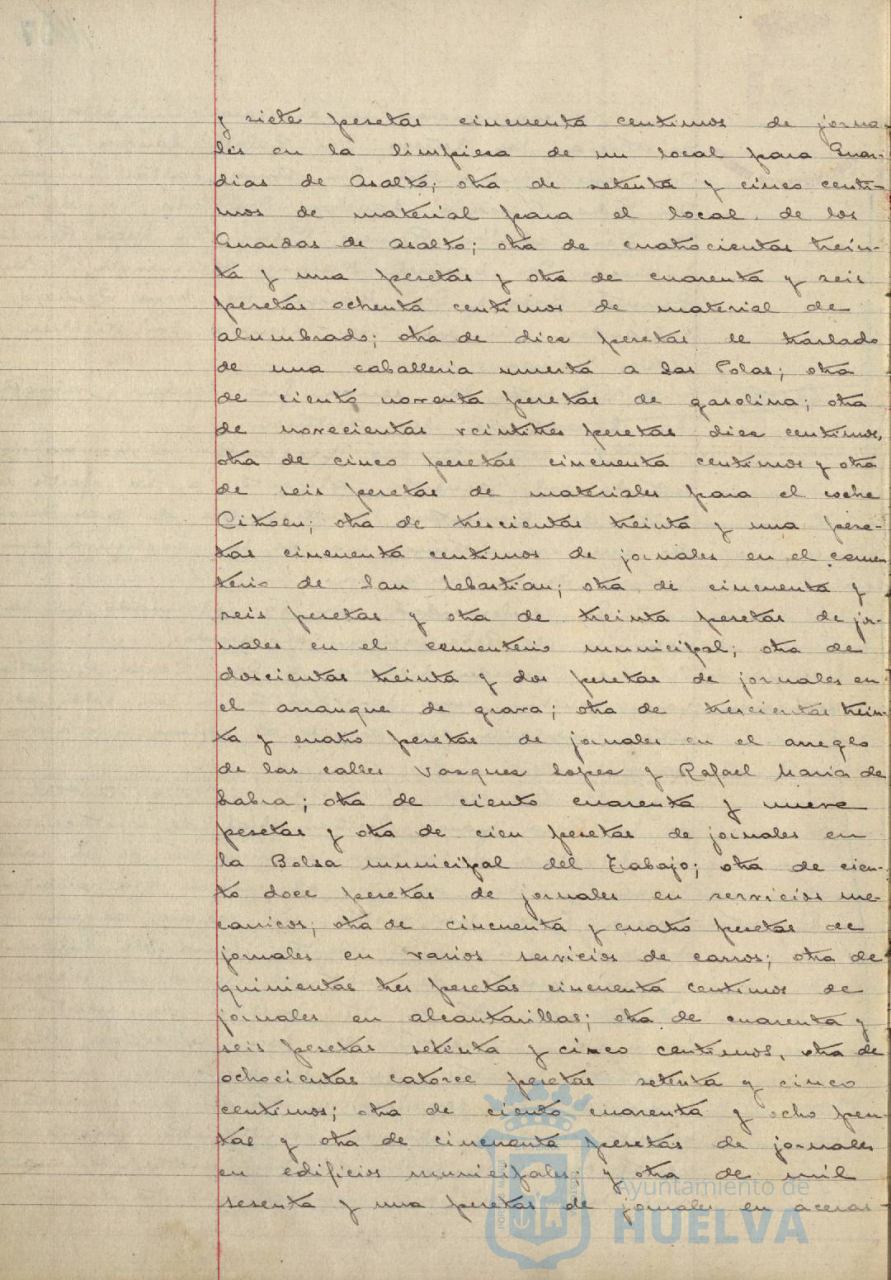 y siete pesetas cincuenta centimos de jorna-
les en la limpiesa de un local para Guar-
dias de Asalto; otra de setenta y cinco centi-
mos de material para el local de los
Guardas de asalto; otra de cuatrocientas trein-
ta y una pesetas y otra de cuarenta y seis
pesetas ochenta centimos de material de
alumbrado; otra de diez pesetas el traslado
de una caballeria muerta a Las Polas; otra
de ciento noventa pesetas de gasolina; otra
de novecientas veintitres pesetas diez centimos,
otra de cinco pesetas cincuenta centimos y otra
de seis pesetas de materiales para el coche
Citroen; otra de trescientas treinta y una pese-
tas cincuenta centimos de jornales en el cemen
terio de San Sebastian; otra de cincuenta y
seis pesetas y otra de treinta pesetas de jor-
nales en el cementerio municipal; otra de
doscientas treinta y dos pesetas de jornales en
el arranque de grava; otra de trescientas trein-
ta y cuatro pesetas de jornales en el arreglo
de las calles Vasques Lopes y Rafael Maria de
Labra; otra de ciento cuarenta y nueve
pesetas y otra de cien pesetas de jornales en
la Bolsa municipal del Trabajo; otra de cien-
to doce pesetas de jornales en servicios me-
canicos; otra de cincuenta y cuatro pesetas de
jornales en varios servicios de carros; otra de
quinientas tres pesetas cincuenta centimos de
jornales en alcantarillas; otra de cuarenta y
seis pesetas setenta y cinco centimos, otra de
ochocientas catorce pesetas setenta y cinco
centimos; otra de ciento cuarenta y ocho pese-
tas y otra de cincuenta pesetas de jornales
en edificios municipales; y otra de mil
sesenta y una pesetas de jornales en aceras
Ayuntamiento de
HUELVA